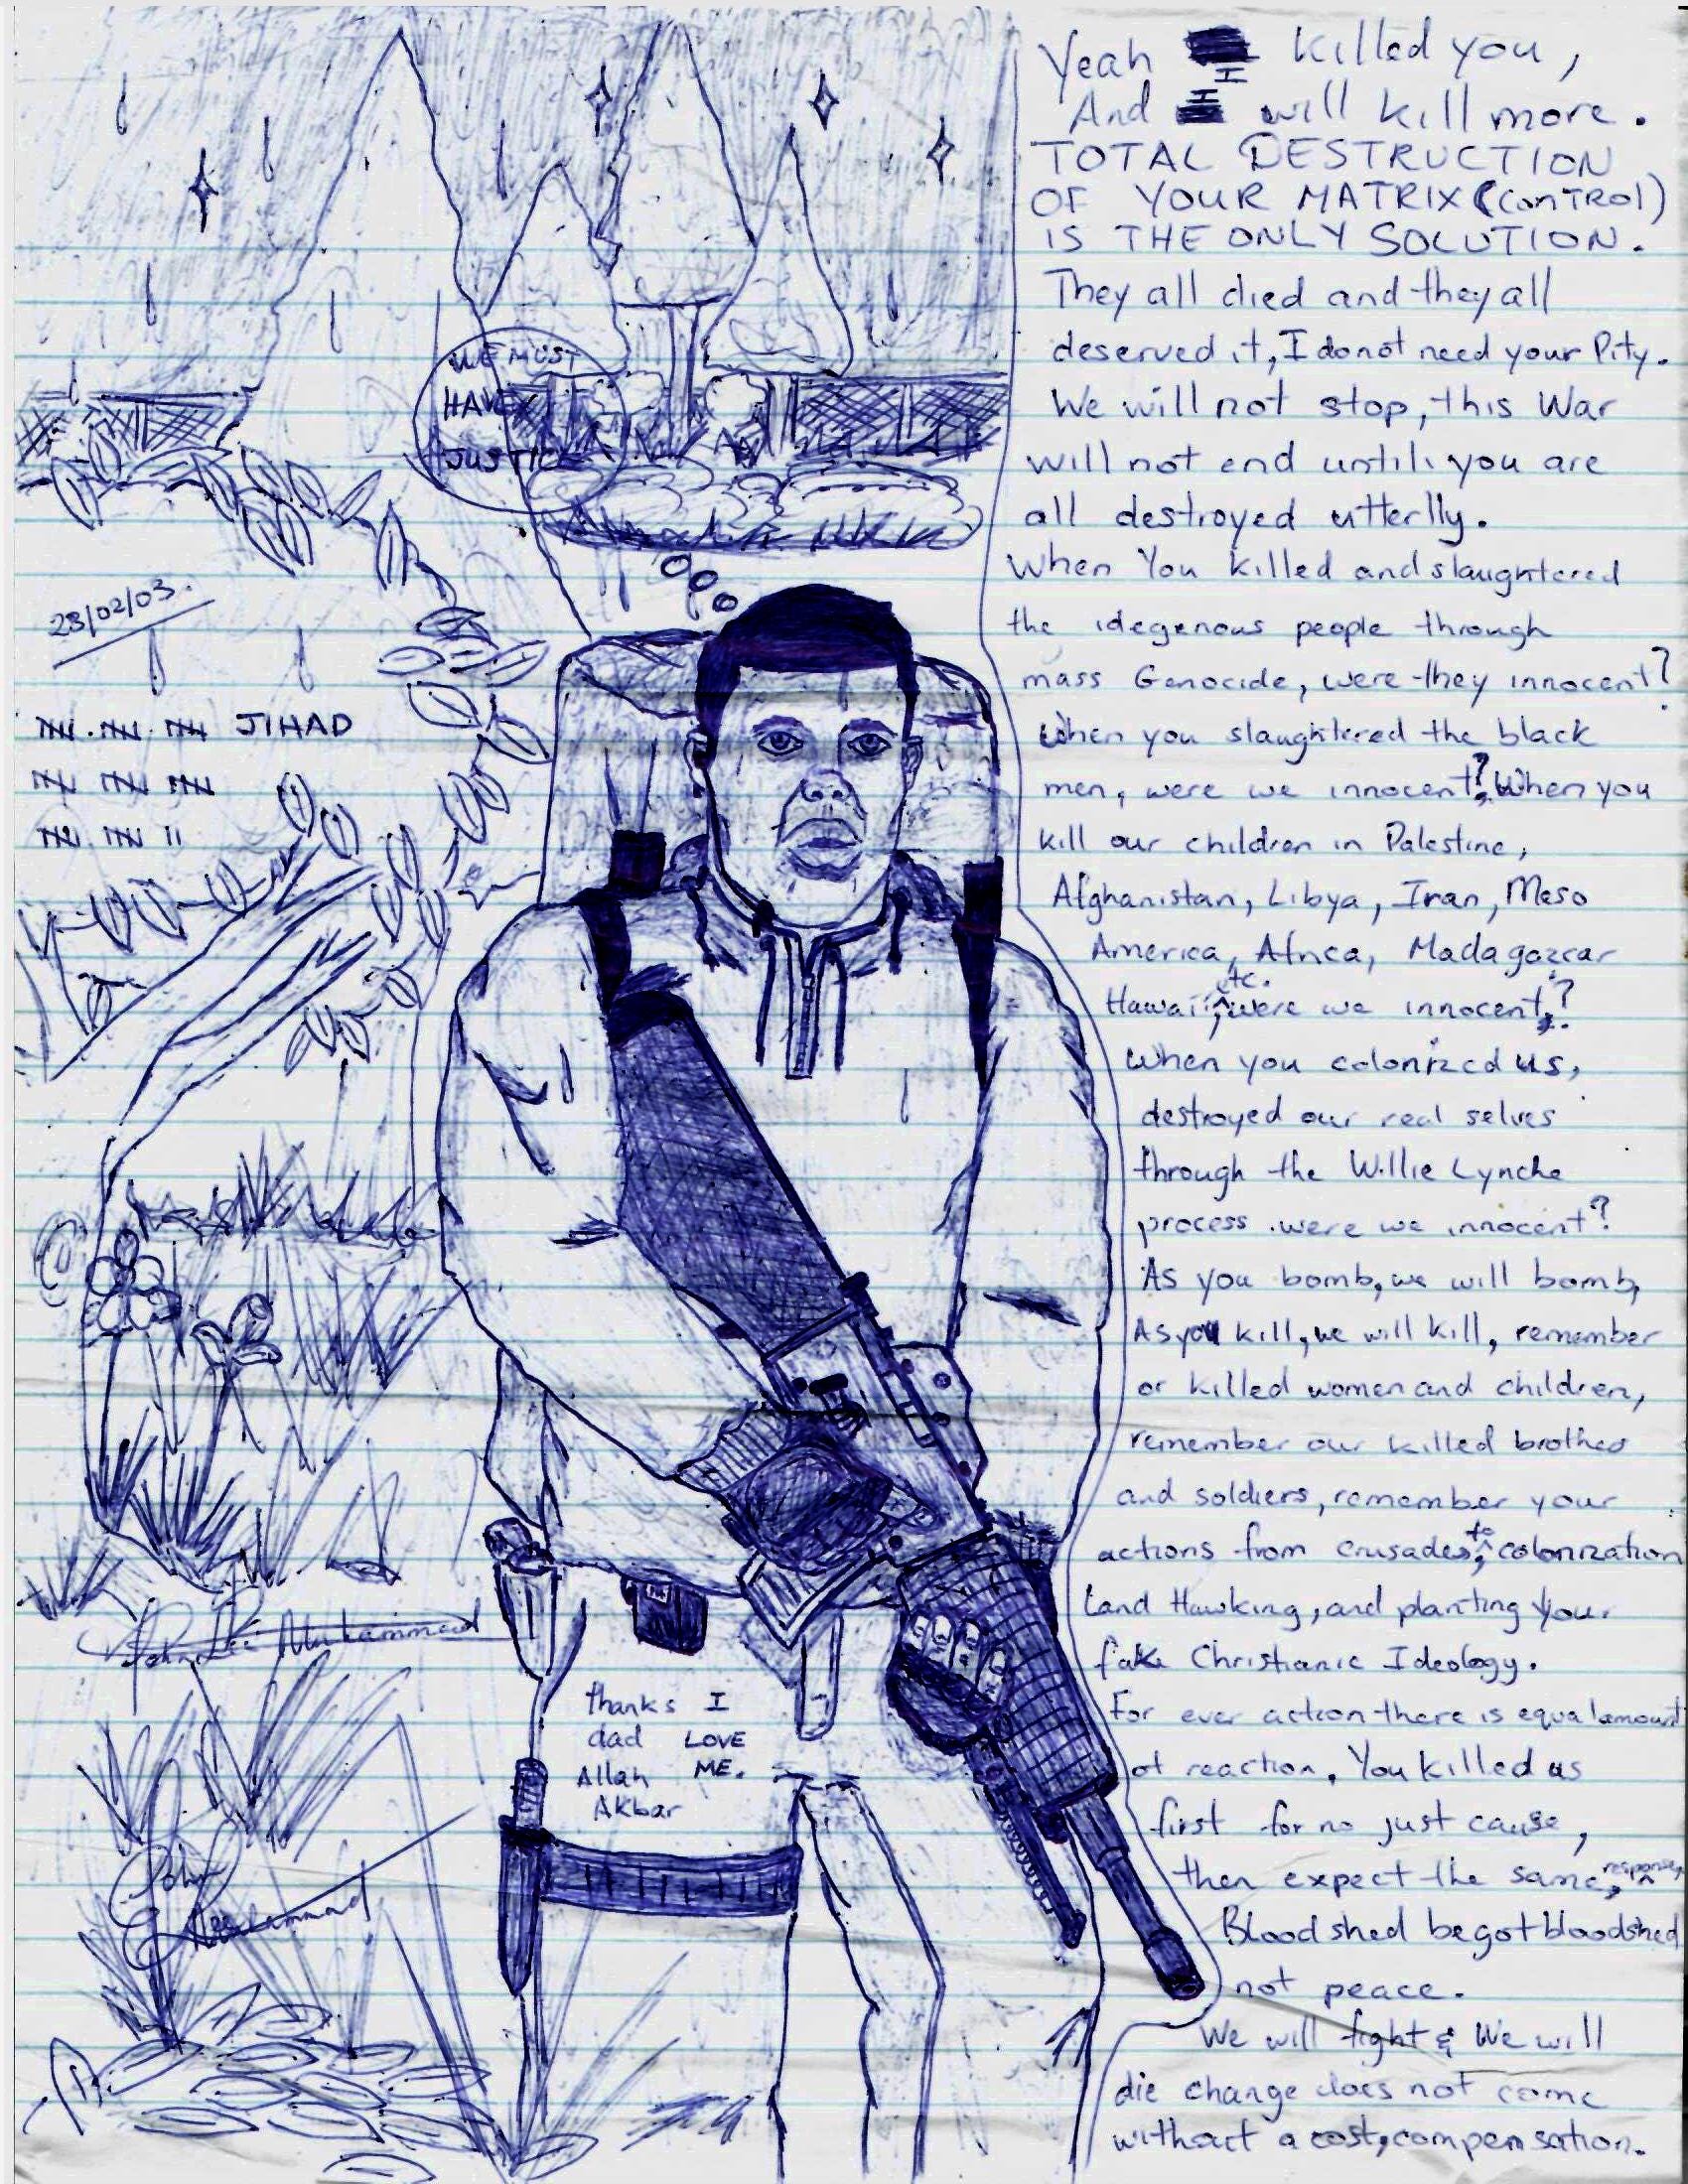 Yeah I killed you,
And I will kill more.
TOTAL DESTRUCTION
OF YOUR MATRIX (CONTROL)
IS THE ONLY SOLUTION.
They all died and they all
deserved it, I do not need your Pity.
We will not stop, this War
will not end until you are
all destroyed utterlly.
When You killed and slaughtered
the idegenous people through
mass Genocide, were they innocent?
When you slaughtered the black
men, were we innocent? When you
kill our children in Palestine,
Afghanistan, Libya, Iran, Meso
America, Africa, Madagazcar
Hawaii, etc. were we innocent?
When you colonized us,
destroyed our real selves
through the Willie Lynche
process were we innocent?
As you bomb, we will bomb,
As you kill, we will kill, remember
or killed women and children,
remember our killed brothes
and soldiers, remember your
actions from crusades, to colonization
Land Hawking, and planting your
fake Christianic Ideology.
For ever action there is equal amount
of reaction. You killed us
first for no just cause,
then expect the same response,
Bloodshed begot bloodshed
not peace.
We will fight & We will
die change does not come
without a cost, compensation.
WE MUST
HAVE
JUSTICE
28/02/03.
JIHAD
John Lee Muhammad
thanks I
dad LOVE
Allah ME.
AKbar
John
Lee Muhammad